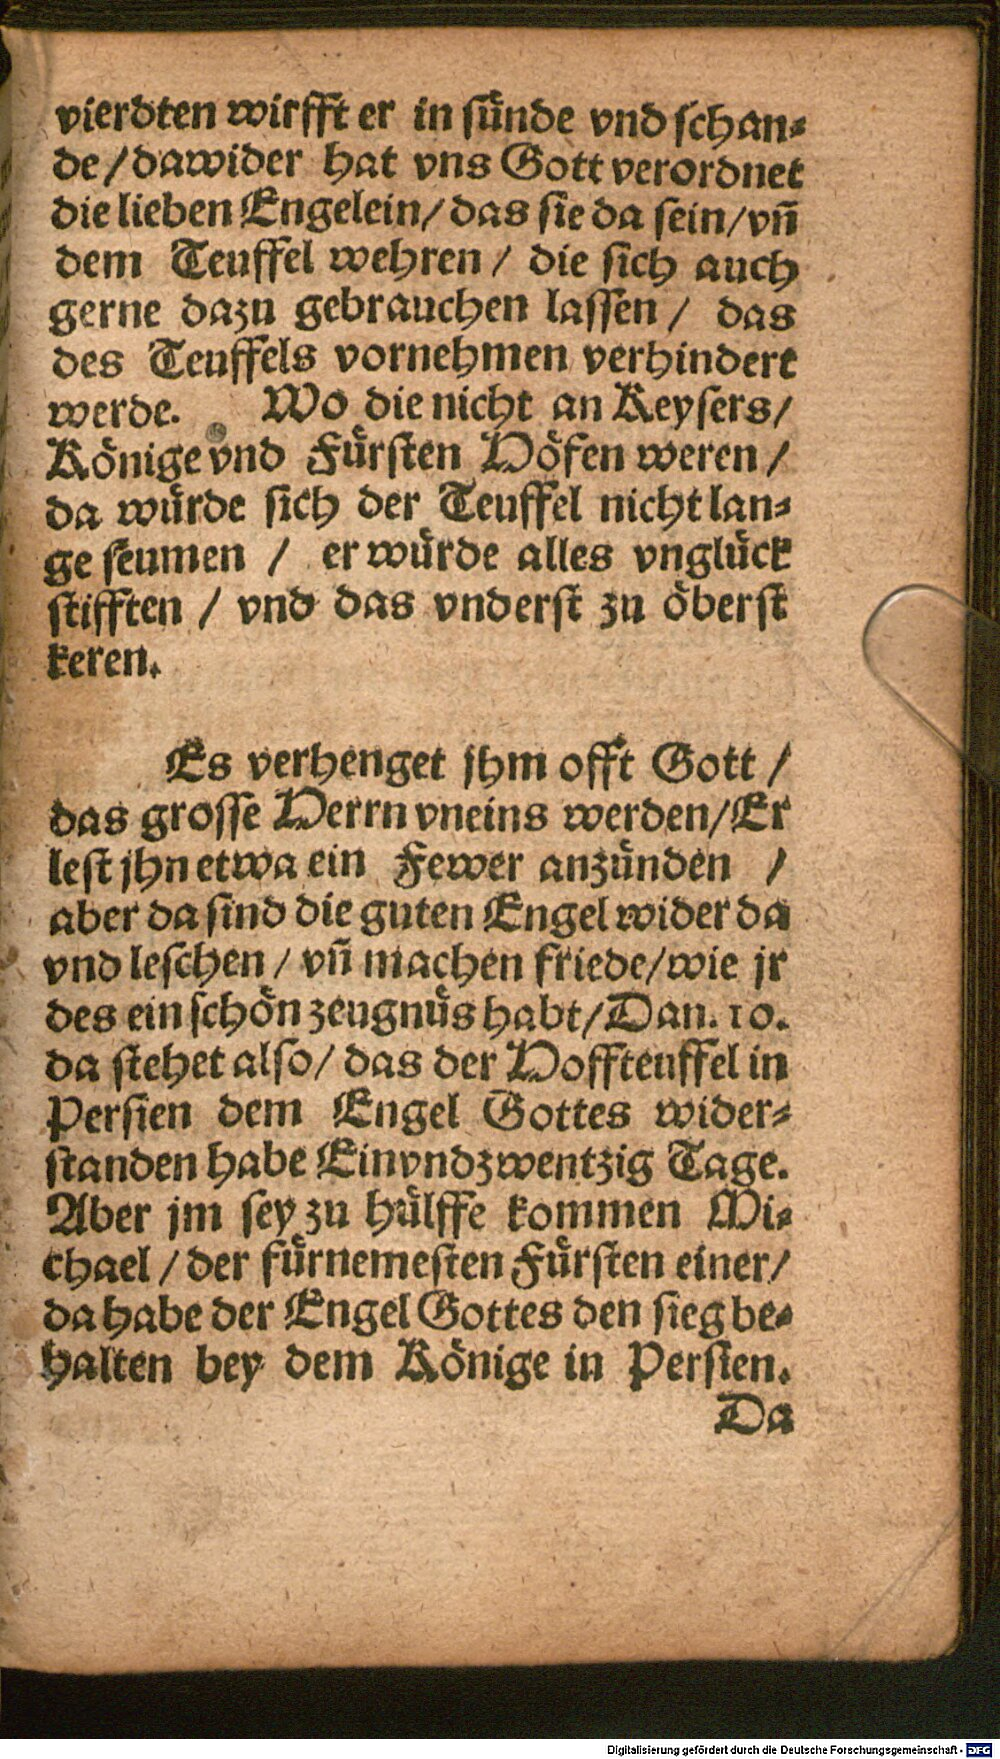 vierdten wirfft er in sünde vnd schan⸗
de / dawider hat vns Gott verordnet
die lieben Engelein / das sie da sein / vñ
dem Teuffel wehren / die sich auch
gerne dazu gebrauchen lassen / das
des Teuffels vornehmen verhindert
werde. Wo die nicht an Keysers /
Könige vnd Fürsten Höfen weren /
da würde sich der Teuffel nicht lan⸗
ge seumen / er würde alles vnglück
stifften / vnd das vnderst zu öberst
keren.
Es verhenget jhm offt Gott /
das grosse Herrn vneins werden / Er
lest jhn etwa ein Fewer anzünden /
aber da sind die guten Engel wider da
vnd leschen / vñ machen friede / wie jr
des ein schön zeugnüs habt / Dan. 10.
da stehet also / das der Hoffteuffel in
Persien dem Engel Gottes wider⸗
standen habe Einvndzwentzig Tage.
Aber jm sey zu hülffe kommen Mi⸗
chael / der fürnemesten Fürsten einer /
da habe der Engel Gottes den sieg be⸗
halten bey dem Könige in Persien.
Da
Digitalisierung gefördert durch die Deutsche Forschungsgemeinschaft - DFG